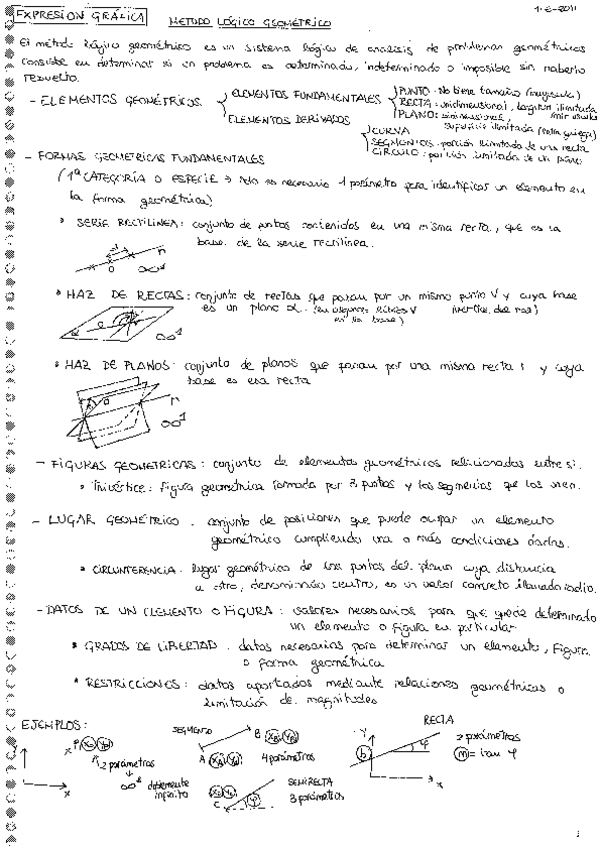 EXPRESIÓN GRÁFICA
METODO LÓGICO GEOMÉTRICO
El método lógico geométrico es un sistema lógico de analisis de problemas geométricos
consiste en determinar si un problema es determinado, indeterminado o imposible sin haberlo
resuelto.
- ELEMENTOS GEOMÉTRICOS
ELEMENTOS FUNDAMENTALES
PUNTO: No tiene tamaño (mayúscula)
RECTA: unidimensional, longitud ilimitada
PLANO: bidimensional,
superficie ilimitada (letra griega)
ELEMENTOS DERIVADOS
CURVA
SEGMENTOS: porción limitada de una recta
CÍRCULO: porción limitada de un plano
- FORMAS GEOMETRICAS FUNDAMENTALES
(1ª CATEGORÍA O ESPECIE → solo es necesario 1 parámetro para identificar un elemento en
la forma geométrica)
• SERIE RECTILINEA: conjunto de puntos contenidos en una misma recta, que es la
base de la serie rectilínea.
0 ∞¹ r
• HAZ DE RECTAS: conjunto de rectas que pasan por un mismo punto V y cuya base
es un plano α.
∞¹
• HAZ DE PLANOS: conjunto de planos que pasan por una misma recta r y cuya
base es esa recta
r
∞¹
- FIGURAS GEOMETRICAS: conjunto de elementos geométricos relacionados entre si.
• Trivértice: Figura geométrica formada por 3 puntos y los segmentos que los unen.
- LUGAR GEOMÉTRICO. conjunto de posiciones que puede ocupar un elemento
geométrico cumpliendo una o más condiciones dadas.
• CIRCUNFERENCIA. lugar geométrico de los puntos del plano cuya distancia
a otro, denominado centro, es un valor concreto llamado radio.
- DATOS DE UN ELEMENTO O FIGURA: valores necesarios para que quede determinado
un elemento o figura en particular
• GRADOS DE LIBERTAD. datos necesarios para determinar un elemento, Figura
o forma geométrica
• RESTRICCIONES: datos aportados mediante relaciones geométricas o
limitación de magnitudes
EJEMPLOS:
2 parámetros
x
SEGMENTO
A (XA, YA) B (XB, YB)
4 parámetros
SEMIRECTA
C φ
3 parámetros
RECTA
Y
b φ
x
2 parámetros
m = tan φ